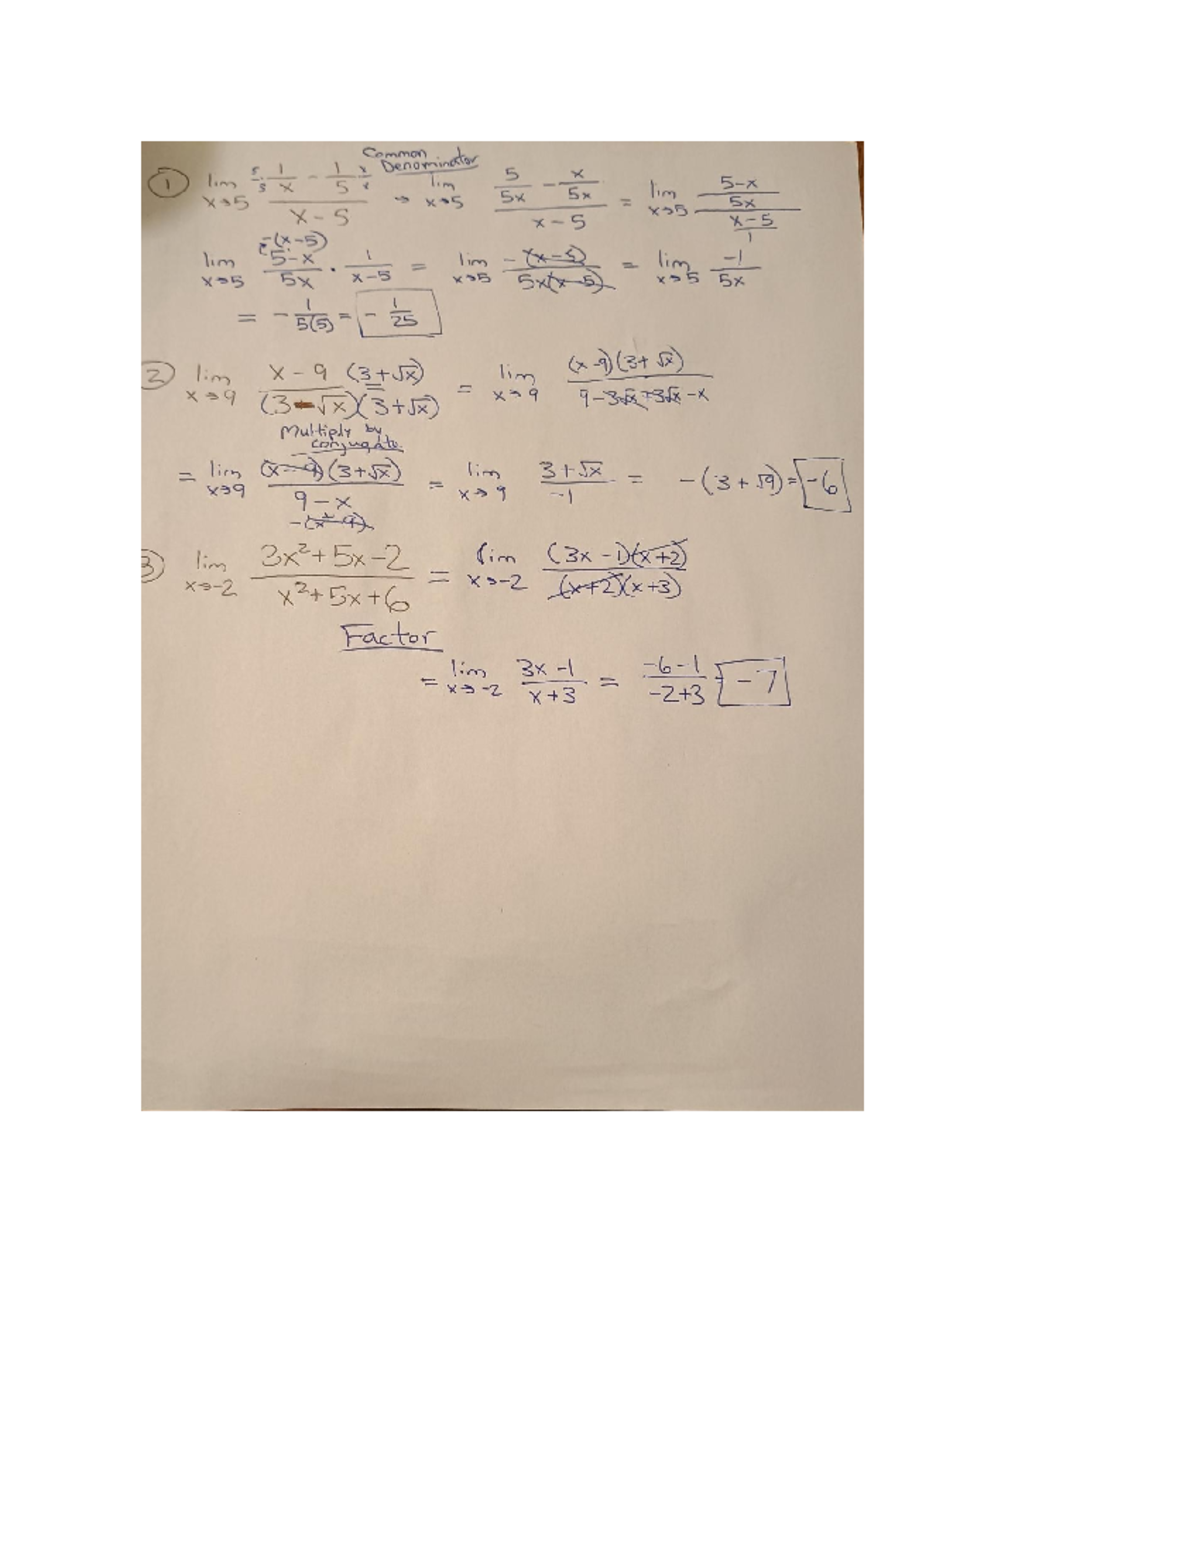 ① lim x→5 (5/5 · 1/x − 1/5 · x/x)/(x−5) Common Denominator → lim x→5 (5/5x − x/5x)/(x−5) = lim x→5 ((5−x)/5x)/((x−5)/1)
−(x−5)
lim x→5 (5−x)/5x · 1/(x−5) = lim x→5 −(x−5)/5x(x−5) = lim x→5 −1/5x
= −1/5(5) = −1/25
② lim x→9 x−9 (3+√x)/(3−√x)(3+√x) = lim x→9 (x−9)(3+√x)/9−3√x+3√x−x
Multiply by conjugate.
= lim x→9 (x−9)(3+√x)/9−x = lim x→9 3+√x/−1 = −(3+√9) = −6
−(x−9)
③ lim x→−2 3x²+5x−2/x²+5x+6 = lim x→−2 (3x−1)(x+2)/(x+2)(x+3)
Factor
= lim x→−2 3x−1/x+3 = −6−1/−2+3 = −7